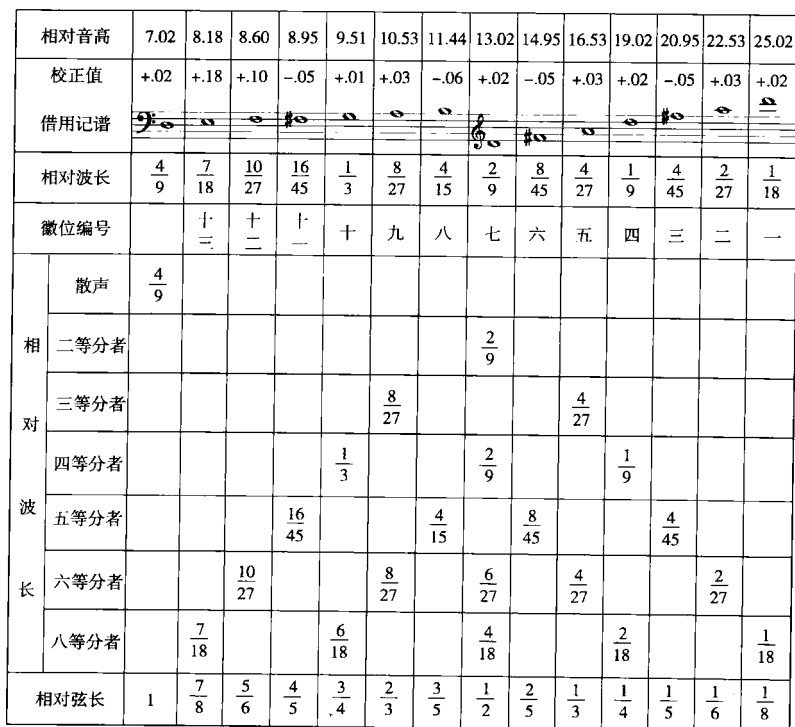 相对音高 7.02 8.18 8.60 8.95 9.51 10.53 11.44 13.02 14.95 16.53 19.02 20.95 22.53 25.02
校正值 +.02 +.18 +.10 -.05 +.01 +.03 -.06 +.02 -.05 +.03 +.02 -.05 +.03 +.02
借用记谱
相对波长 4/9 7/18 10/27 16/45 1/3 8/27 4/15 2/9 8/45 4/27 1/9 4/45 2/27 1/18
徽位编号 十三 十二 十一 十 九 八 七 六 五 四 三 二 一
相对波长
散声 4/9
二等分者 2/9
三等分者 8/27 4/27
四等分者 1/3 2/9 1/9
五等分者 16/45 4/15 8/45 4/45
六等分者 10/27 8/27 6/27 4/27 2/27
八等分者 7/18 6/18 4/18 2/18 1/18
相对弦长 1 7/8 5/6 4/5 3/4 2/3 3/5 1/2 2/5 1/3 1/4 1/5 1/6 1/8